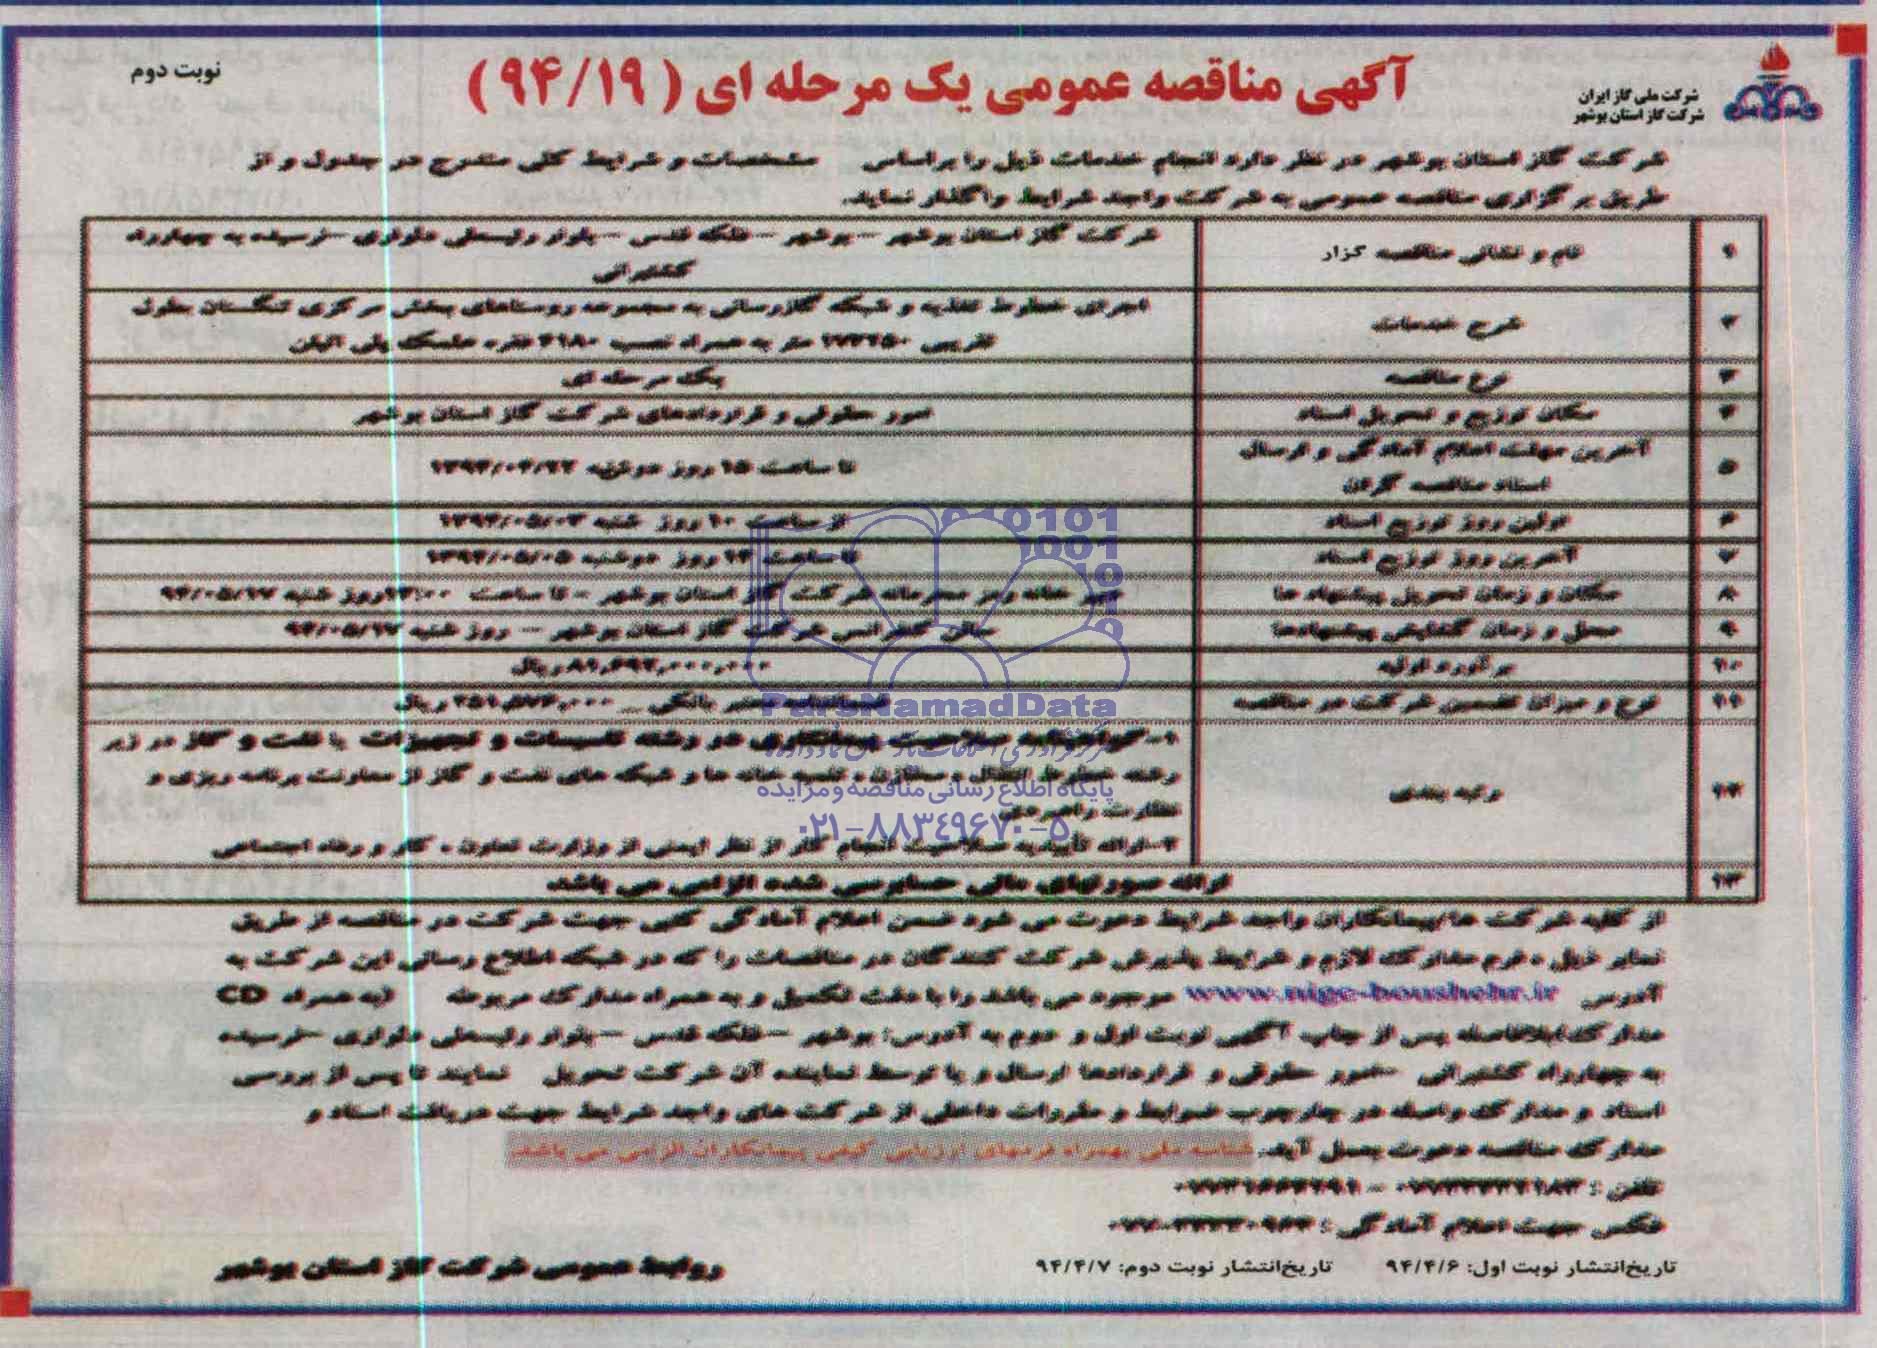 آگهی مناقصه عمومی یک مرحله ای (۹۴/۱۹)
نوبت دوم
شرکت ملی گاز ایران
شرکت گاز استان بوشهر
شرکت گاز استان بوشهر در نظر دارد انجام خدمات ذیل را براساس مشخصات و شرایط کلی مشرح در جدول و از
طریق برگزاری مناقصه عمومی به شرکت واجد شرایط واگذار نماید.
۱ نام و نشانی مناقصه گزار شرکت گاز استان بوشهر – بوشهر – فلکه قدس – بلوار رئیسعلی دلواری – نرسیده به چهارراه
کشتیرانی
۲ شرح خدمات اجرای خطوط تغذیه و شبکه گازرسانی به مجموعه روستاهای بخش مرکزی تنگستان بطول
تقریبی متر به همراه نصب علمک پلی اتیلن
۳ نوع مناقصه یک مرحله ای
۴ مکان توزیع و تحویل اسناد امور حقوقی و قراردادهای شرکت گاز استان بوشهر
۵ آخرین مهلت اعلام آمادگی و ارسال
اسناد مناقصه گران تا ساعت ۱۵ روز دوشنبه ۱۳۹۴/۰۴/۲۲
۶ اولین روز توزیع اسناد از ساعت ۱۰ روز شنبه ۱۳۹۴/۰۵/۰۳
۷ آخرین روز توزیع اسناد تا ساعت ۱۴ روز دوشنبه ۱۳۹۴/۰۵/۰۵
۸ مکان و زمان تحویل پیشنهاد ها دبیر خانه شرکت گاز استان بوشهر - تا ساعت روز شنبه ۹۴/۰۵/۱۷
۹ محل و زمان گشایش پیشنهادها سالن کنفرانس شرکت گاز استان بوشهر – روز شنبه ۹۴/۰۵/۱۷
۱۰ برآورد اولیه ریال
۱۱ نوع و میزان تضمین شرکت در مناقصه بانکی ریال
۱۲ رتبه بندی ۱- گواهینامه صلاحیت پیمانکاری در رشته تاسیسات و تجهیزات یا نفت و گاز در زیر
رشته خطوط انتقال و شبکه های نفت و گاز از معاونت برنامه ریزی و
نظارت راهبردی
۲- ارائه تأییدیه صلاحیت انجام کار از نظر ایمنی از وزارت تعاون ، کار و رفاه اجتماعی
۱۳ ارائه صورتهای مالی حسابرسی شده الزامی می باشد
از کلیه شرکت ها/پیمانکاران واجد شرایط دعوت می شود ضمن اعلام آمادگی کتبی جهت شرکت در مناقصه از طریق
نمابر ذیل ، فرم مدارک لازم و شرایط پذیرش شرکت کنندگان در مناقصات را که در شبکه اطلاع رسانی این شرکت به
آدرس www.nigc-boushehr.ir موجود می باشد را با دقت تکمیل و به همراه مدارک مربوطه (به همراه CD
مدارک)بلافاصله پس از چاپ آگهی نوبت اول و دوم به آدرس: بوشهر – فلکه قدس – بلوار رئیسعلی دلواری – نرسیده
به چهارراه کشتیرانی – امور حقوقی و قراردادها ارسال و یا توسط نماینده آن شرکت تحویل نمایند تا پس از بررسی
اسناد و مدارک واصله در چارچوب ضوابط و مقررات داخلی از شرکت های واجد شرایط جهت دریافت اسناد و
مدارک مناقصه دعوت بعمل آید. شناسه ملی بهمراه فرمهای ارزیابی کیفی پیمانکاران الزامی می باشد.
تلفن :
فکس جهت اعلام آمادگی :
تاریخ انتشار نوبت اول: ۹۴/۴/۶ تاریخ انتشار نوبت دوم: ۹۴/۴/۷
روابط عمومی شرکت گاز استان بوشهر
ParsNamadData
پایگاه اطلاع رسانی مناقصه و مزایده
۰۲۱-۸۸۳۴۹۶۷۰-۵